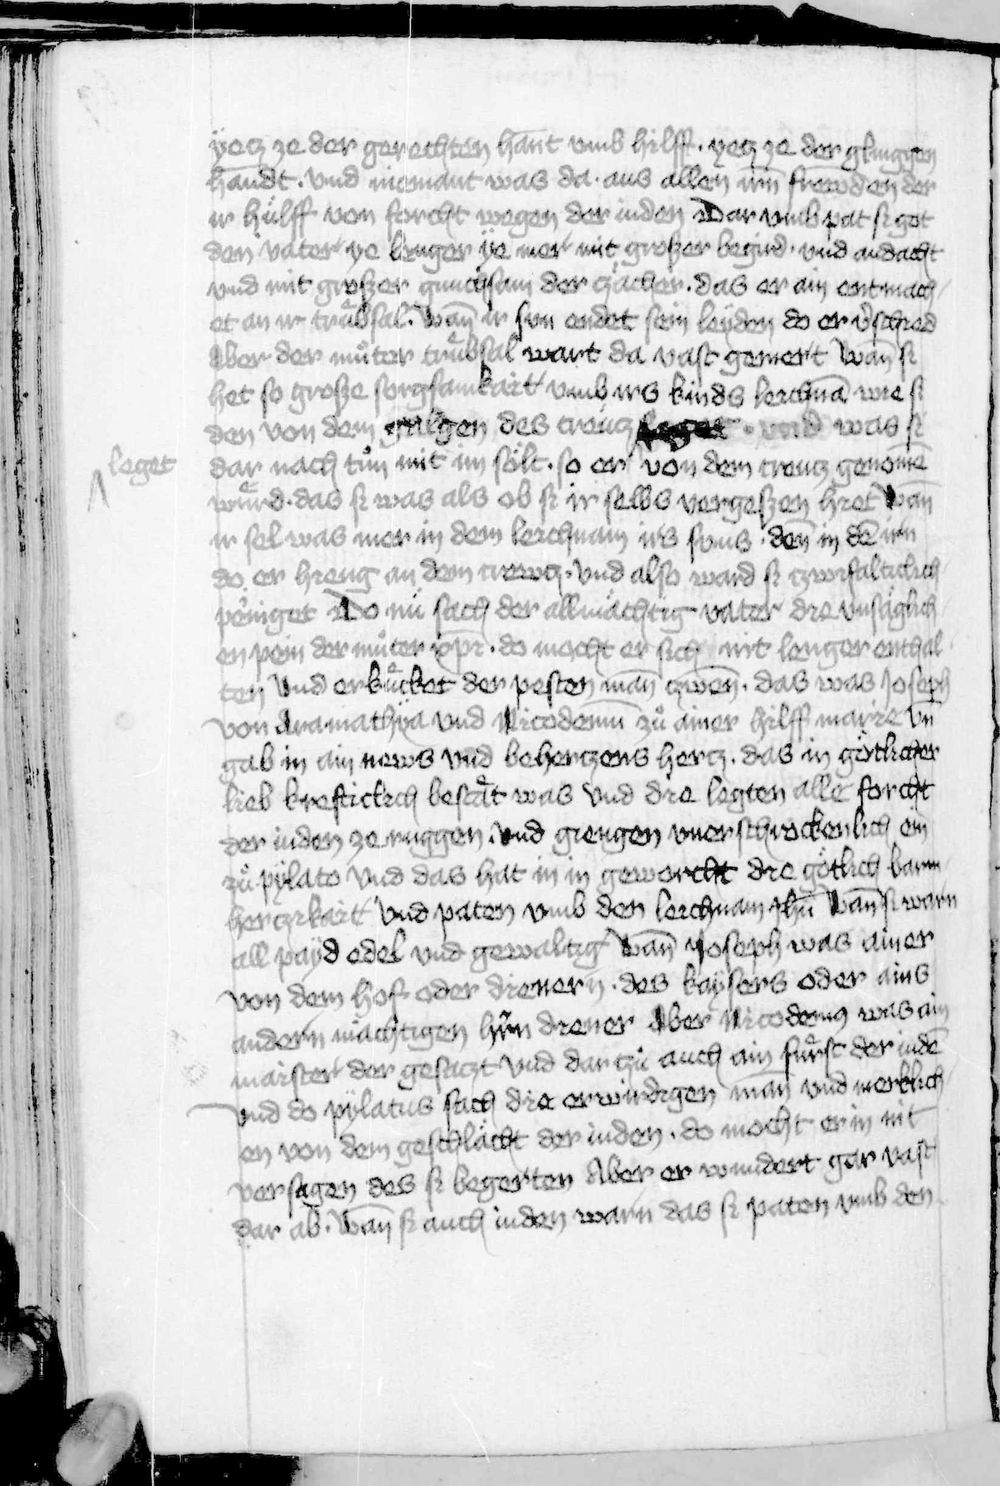 ÿetz ze der gerechten hant vmb hilff · yetz ze der glinggen
handt · vnd niemant was da · aus allen irn frewnden der
ir hülff von forcht wegen der iuden Dar vmb pat si got
den vater ye lenger ÿe mer mit groszer begird · vnd andacht
vnd mit groszer gnuchsam der zächer · das er ain entmach
et an ir trübsal · Wan̄ ir sun endet sein leyden do er v̓schied
Aber der můter trübsal wart da vast gemert Wan̄ si
het so grosze sorgsamkait vmb irs kinds leichnā wie si
den von dem galgen des creutz vnd was si
leget
dar nach tůn mit im sölt · so er von dem creutz genomē
würd · das si was als ob si ir selbs vergeszen hiet Wan̄
ir sel was mer in dem leichnam irs suns · den̄ in dē irn
do er hieng an dem crewtz · Vnd also ward si zwifaltiklich
peiniget Do nu sach der allmächtig vater die vnsäglich
en pein der můter xp̄i · do mocht er sich nit lenger enthal
ten Vnd erkücket der pesten man̄ zwen · das was Joseph
von Aramathÿa vnd Nicodemū zů ainer hilff marie Vn̄
gab in ain news vnd behertzens hertz · das in götlicher
lieb kreftiklich bestät was Vnd die legten alle forcht
der iuden ze ruggen · Vnd giengen vnerschrockenlich ein
zů pÿlato Vnd das hat in in geworcht die götlich barm
hertzikait Vnd paten vmb den leichnam ihū Wan̄ si warn
all payd edel vnd gewaltig Wan̄ Joseph was ainer
von dem hof oder dienern · des kaÿsers oder ains
andern mächtigen hr̄n diener Aber Nicodem9 was ain
maister der gesatzt Vnd dar zů auch ain fürst der iudē
Vnd do pÿlatus sach die erwirdigen man̄ vnd merklich
en von dem geschlächt der iuden · do mocht er in nit
versagen des si begerten Aber er wundert gar vast
dar ab · Wan̄ si auch iuden warn das si paten vmb den